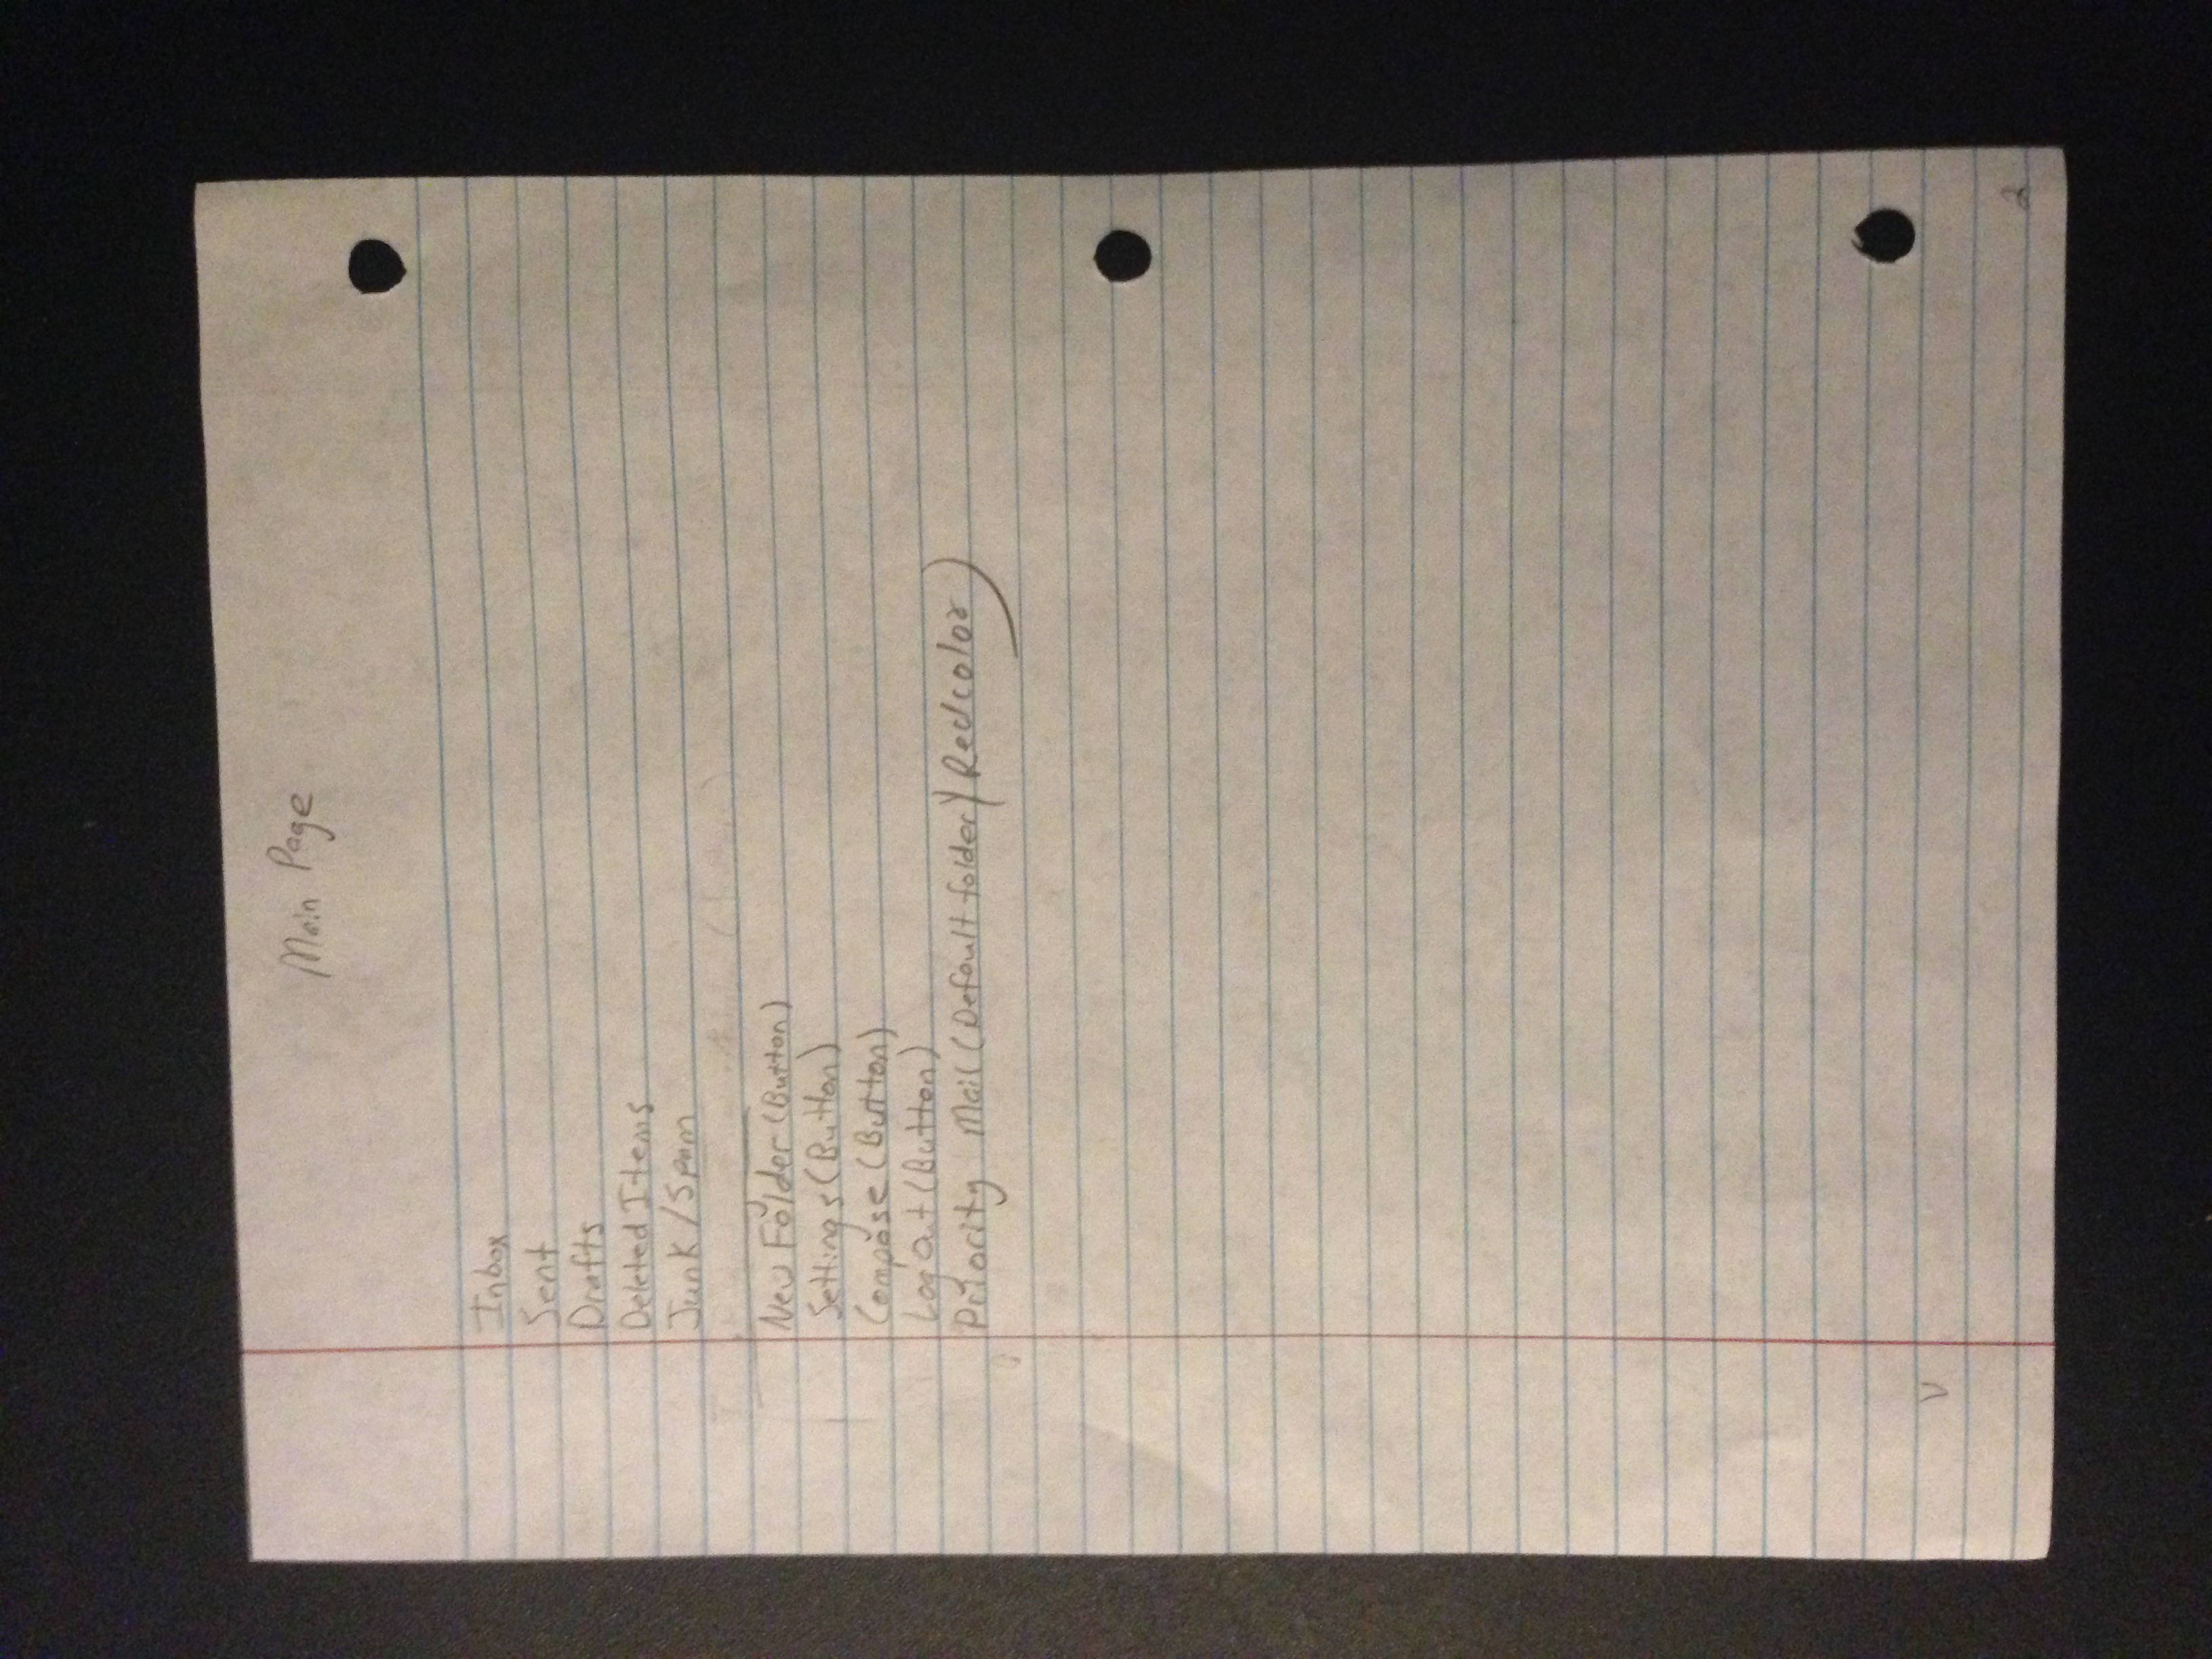 Main Page
Inbox
Sent
Drafts
Deleted Items
Junk / Spam
New Folder (Button)
Settings (Button)
Compose (Button)
Log Out (Button)
Priority Mail (Default folder) Red color)
V
2